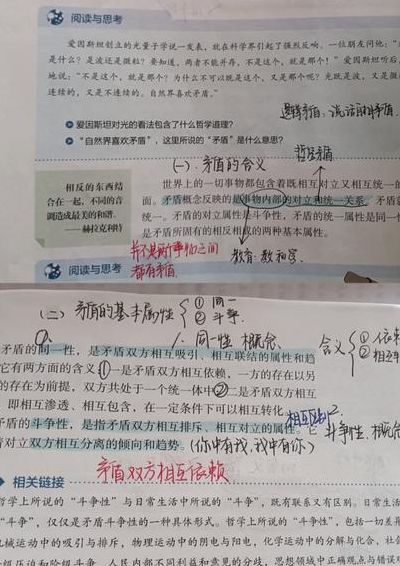 阅读与思考
爱因斯坦创立的光量子学说一发表，就在科学界引起了强烈反响。一位朋友问他："
是什么？是波还是微粒？要知道，两者不能并存，不是这个，就是那个！"爱因斯坦听后，
地说："不是这个，就是那个？为什么不可以既是这个，又是那个呢？光既是波，又是微
连续的，又是不连续的。自然界喜欢矛盾。"
逻辑矛盾：说话的矛盾
爱因斯坦对光的看法包含了什么哲学道理？
"自然界喜欢矛盾"，这里所说的"矛盾"是什么意思？
哲学矛盾
(一) 矛盾的含义
相反的东西结
合在一起，不同的音
调造成最美的和谐。
——赫拉克利特
世界上的一切事物都包含着既相互对立又相互统一的
面。矛盾概念反映的是事物内部的对立和统一关系。矛盾就
统一。矛盾的对立属性是斗争性，矛盾的统一属性是同一性
是矛盾所固有的相反相成的两种基本属性。
并不是两个事物之间
都有矛盾
阅读与思考
(二) 矛盾的基本属性 ①同一 ②斗争
1. 同一性 概念
含义 ① ②
矛盾的同一性，是矛盾双方相互吸引、相互联结的属性和趋
它有两方面的含义①一是矛盾双方相互依赖，一方的存在以另
的存在为前提，双方共处于一个统一体中②二是矛盾双方相互
即相互渗透、相互包含，在一定条件下可以相互转化
2. 斗争性 概念
矛盾的斗争性，是指矛盾双方相互排斥、相互对立的属性。它
着对立双方相互分离的倾向和趋势。(你中有我，我中有你)
矛盾双方相互依赖
相关链接
哲学上所说的"斗争性"与日常生活中所说的"斗争"，既有联系又有区别。日常生活
"斗争"，仅仅是矛盾斗争性的一种具体形式。哲学上所说的"斗争性"，包括一切差异
机械运动中的吸引与排斥，物理运动中的阴电与阳电，化学运动中的分解与化合，社会
级压迫和阶级斗争，人民内部不同利益和意见的分歧，思想领域中正确观点与错误观